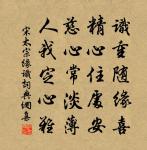 識重隨緣喜
精心住處安
慈心常淡薄
人我定心程
宋太宗緣識詞典網集